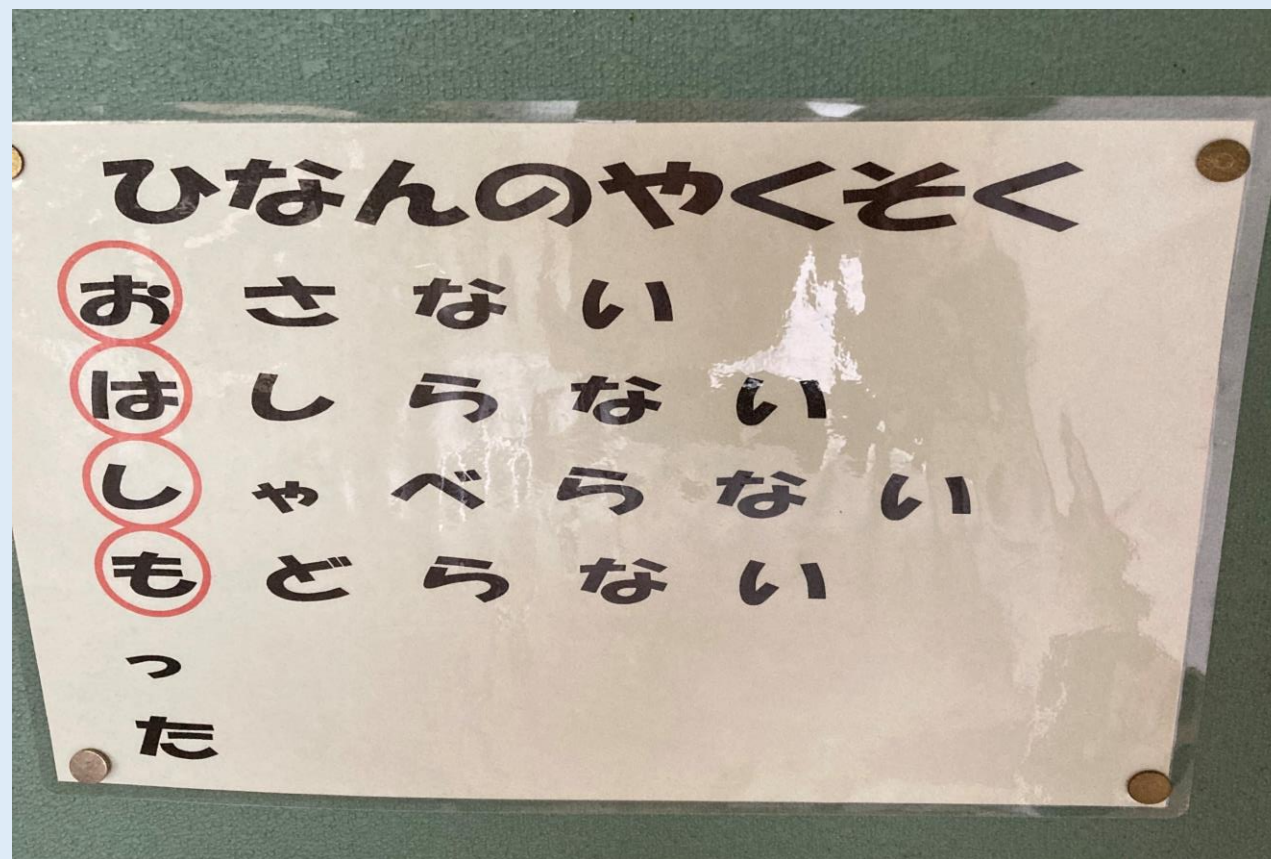 ひなんのやくそく
おさない
はしらない
しゃべらない
もどらない
っ
た